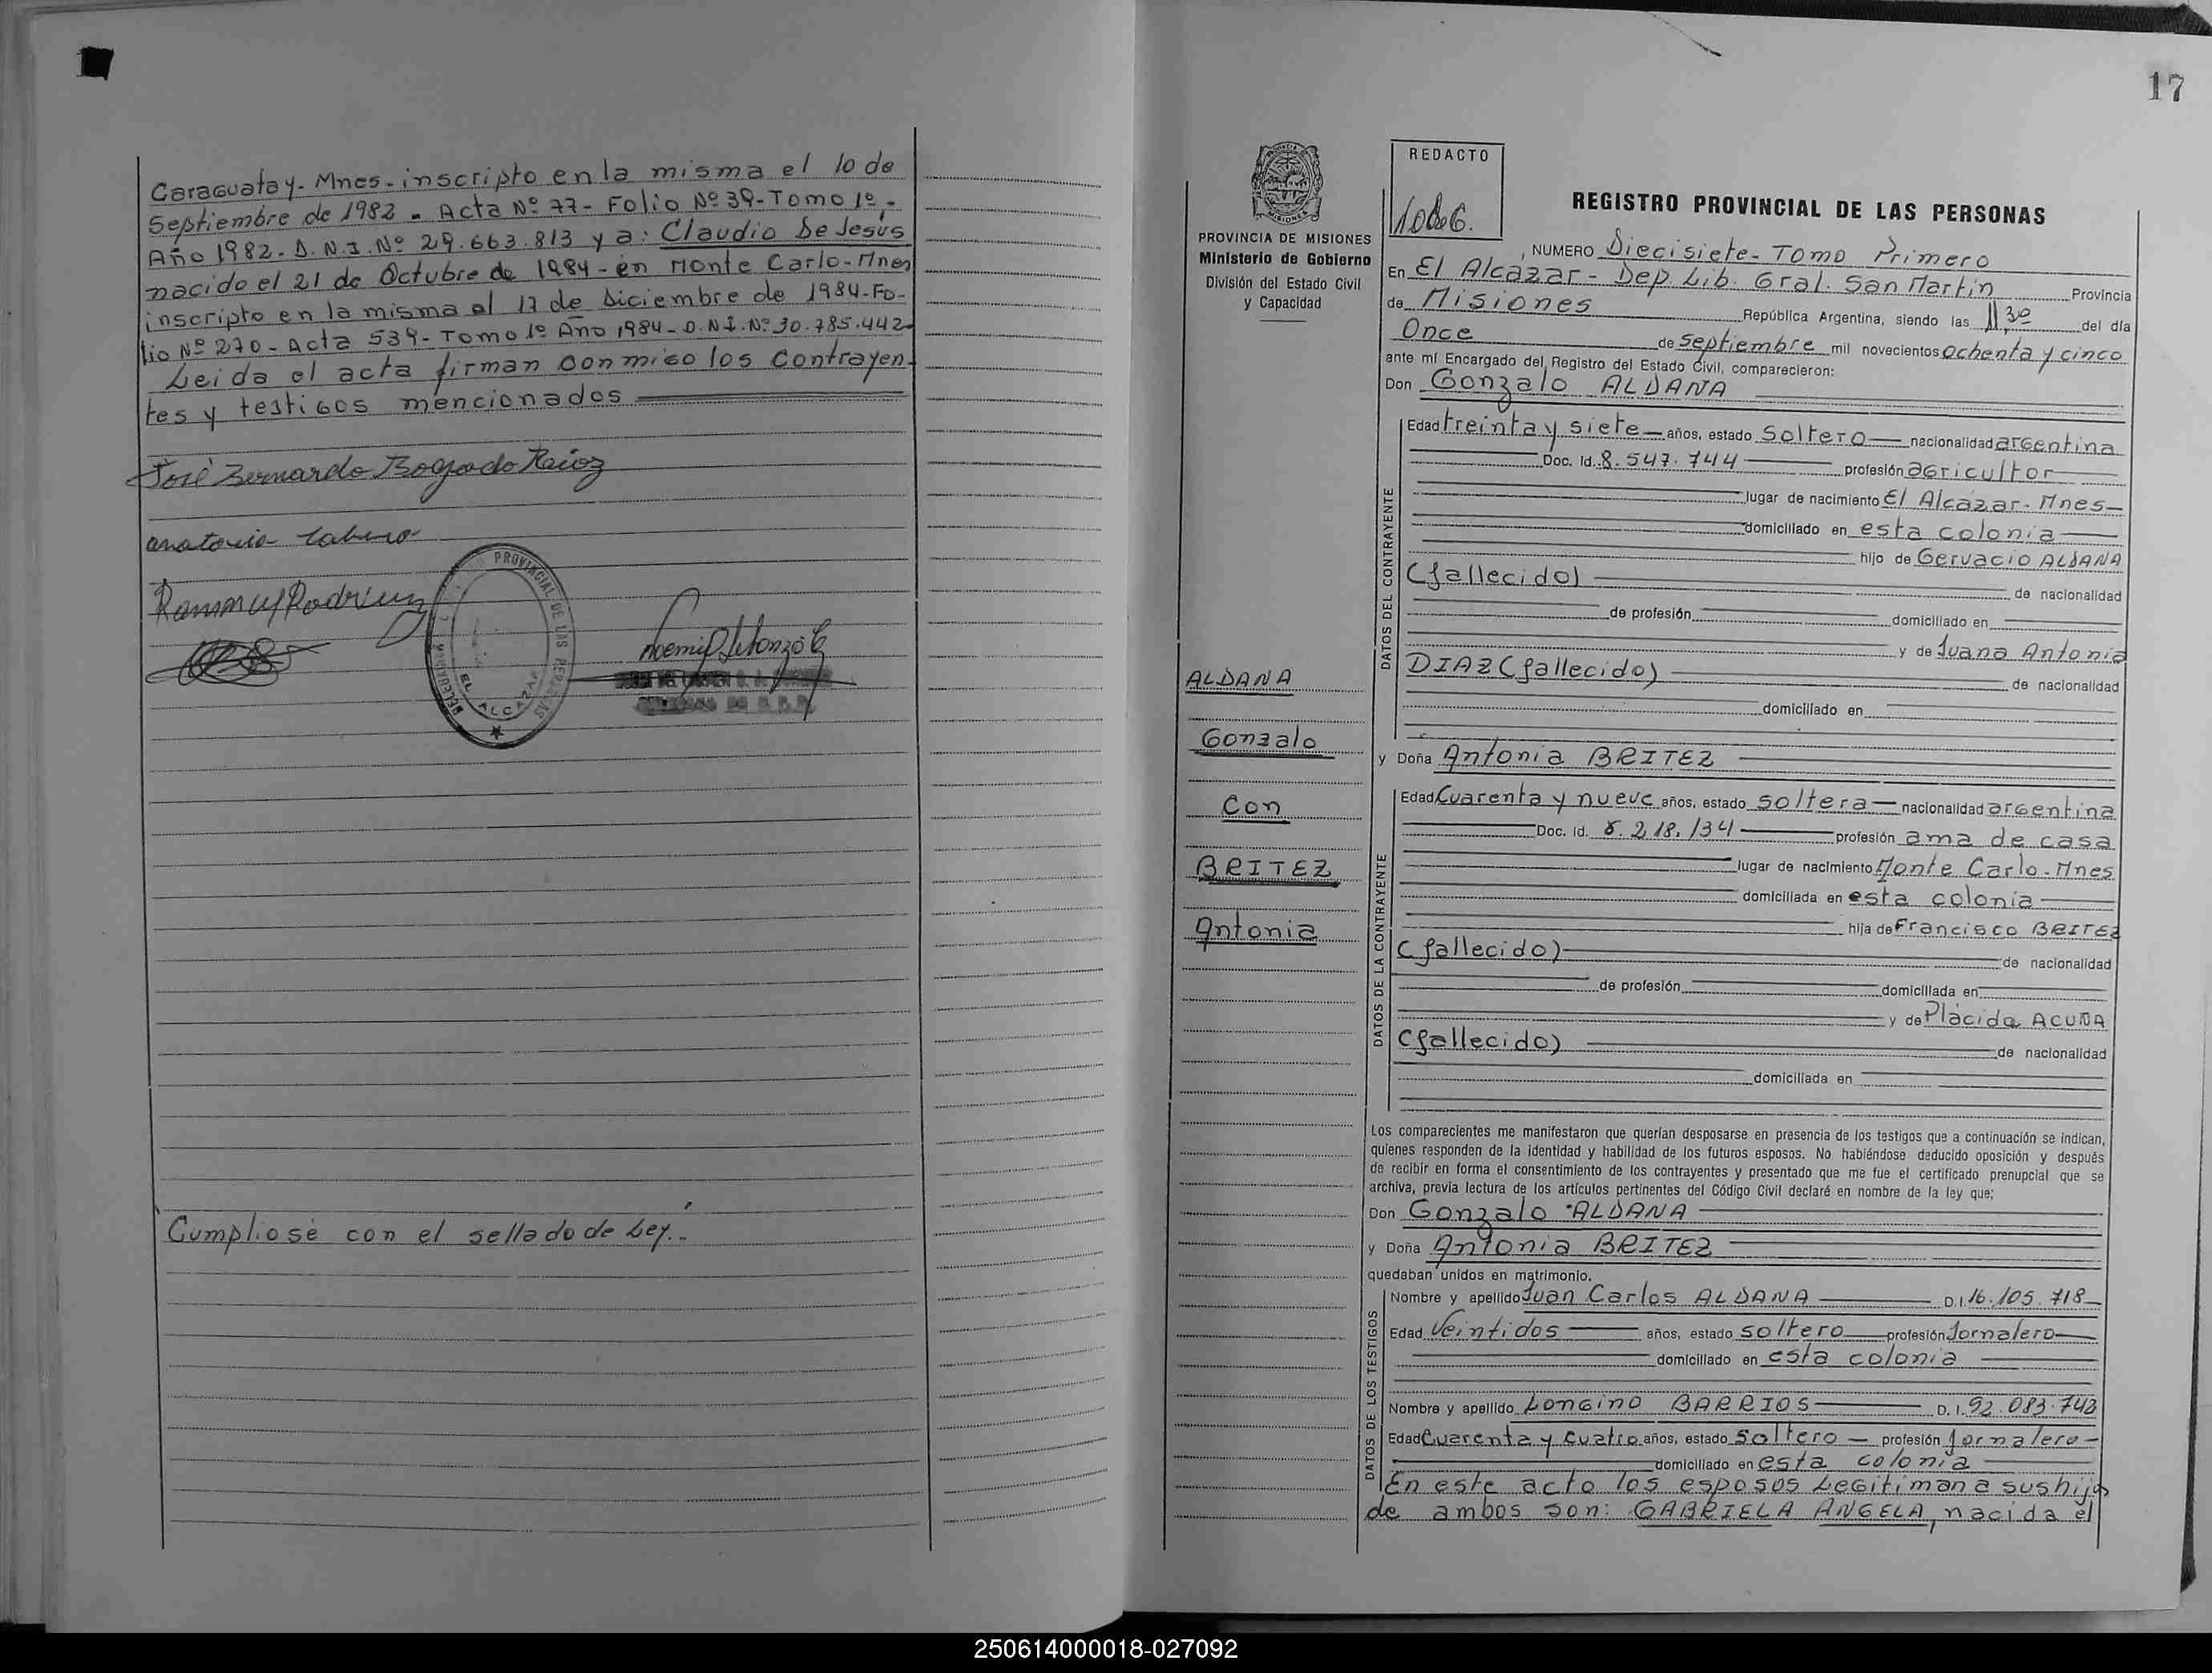 Caraguatay- Mnes- inscripto en la misma el 10 de
Septiembre de 1982 - Acta Nº 77- Folio Nº 39- Tomo 1º -
Año 1982- D.N.I. Nº 29.663.813 y a: Claudio De Jesús
nacido el 21 de Octubre de 1984- en Monte Carlo- Mnes
inscripto en la misma el 17 de Diciembre de 1984- Fo-
lio Nº 270- Acta 539- Tomo 1º Año 1984- D.N.I. Nº 30.785.442-
Leida el acta firman conmigo los contrayen-
tes y testigos mencionados
José Bernardo Bogado
PROVINCIAL DE LAS PERSONAS
EL ALCAZAR
Cumpliose con el sellado de Ley..
17
PROVINCIA DE MISIONES
Ministerio de Gobierno
División del Estado Civil
y Capacidad
ALDANA
Gonzalo
Con
BRITEZ
Antonia
REDACTO
REGISTRO PROVINCIAL DE LAS PERSONAS
NUMERO Diecisiete- Tomo Primero
En El Alcazar- Dep. Lib. Gral. San Martin Provincia
de Misiones República Argentina, siendo las 11,30 del día
Once de Septiembre mil novecientos ochenta y cinco
ante mí Encargado del Registro del Estado Civil, comparecieron:
Don Gonzalo ALDANA
DATOS DEL CONTRAYENTE
Edad treinta y siete años, estado Soltero nacionalidad argentina
Doc. Id. 8.547.744 profesión agricultor
lugar de nacimiento El Alcázar- Mnes-
domiciliado en esta colonia
hijo de Gervacio ALDANA
(fallecido) de nacionalidad
de profesión domiciliado en
y de Juana Antonia
DIAZ (fallecido) de nacionalidad
domiciliado en
y Doña Antonia BRITEZ
DATOS DE LA CONTRAYENTE
Edad Cuarenta y nueve años, estado soltera nacionalidad argentina
Doc. Id. 8.218.134 profesión ama de casa
lugar de nacimiento Monte Carlo- Mnes
domiciliada en esta colonia
hija de Francisco BRITEZ
(fallecido) de nacionalidad
de profesión domiciliada en
y de Plácida ACUÑA
(fallecido) de nacionalidad
domiciliada en
Los comparecientes me manifestaron que querían desposarse en presencia de los testigos que a continuación se indican,
quienes responden de la identidad y habilidad de los futuros esposos. No habiéndose deducido oposición y después
de recibir en forma el consentimiento de los contrayentes y presentado que me fue el certificado prenupcial que se
archiva, previa lectura de los artículos pertinentes del Código Civil declaré en nombre de la ley que;
Don Gonzalo ALDANA
y Doña Antonia BRITEZ
quedaban unidos en matrimonio.
DATOS DE LOS TESTIGOS
Nombre y apellido Juan Carlos ALDANA D.I. 16.105.718
Edad Veintidos años, estado soltero profesión Jornalero
domiciliado en esta colonia
Nombre y apellido Longino BARRIOS D.I. 92.083.742
Edad Cuarenta y cuatro años, estado soltero profesión jornalero
domiciliado en esta colonia
En este acto los esposos Legitiman a sus hijos
de ambos son: GABRIELA ANGELA, nacida el
250614000018-027092